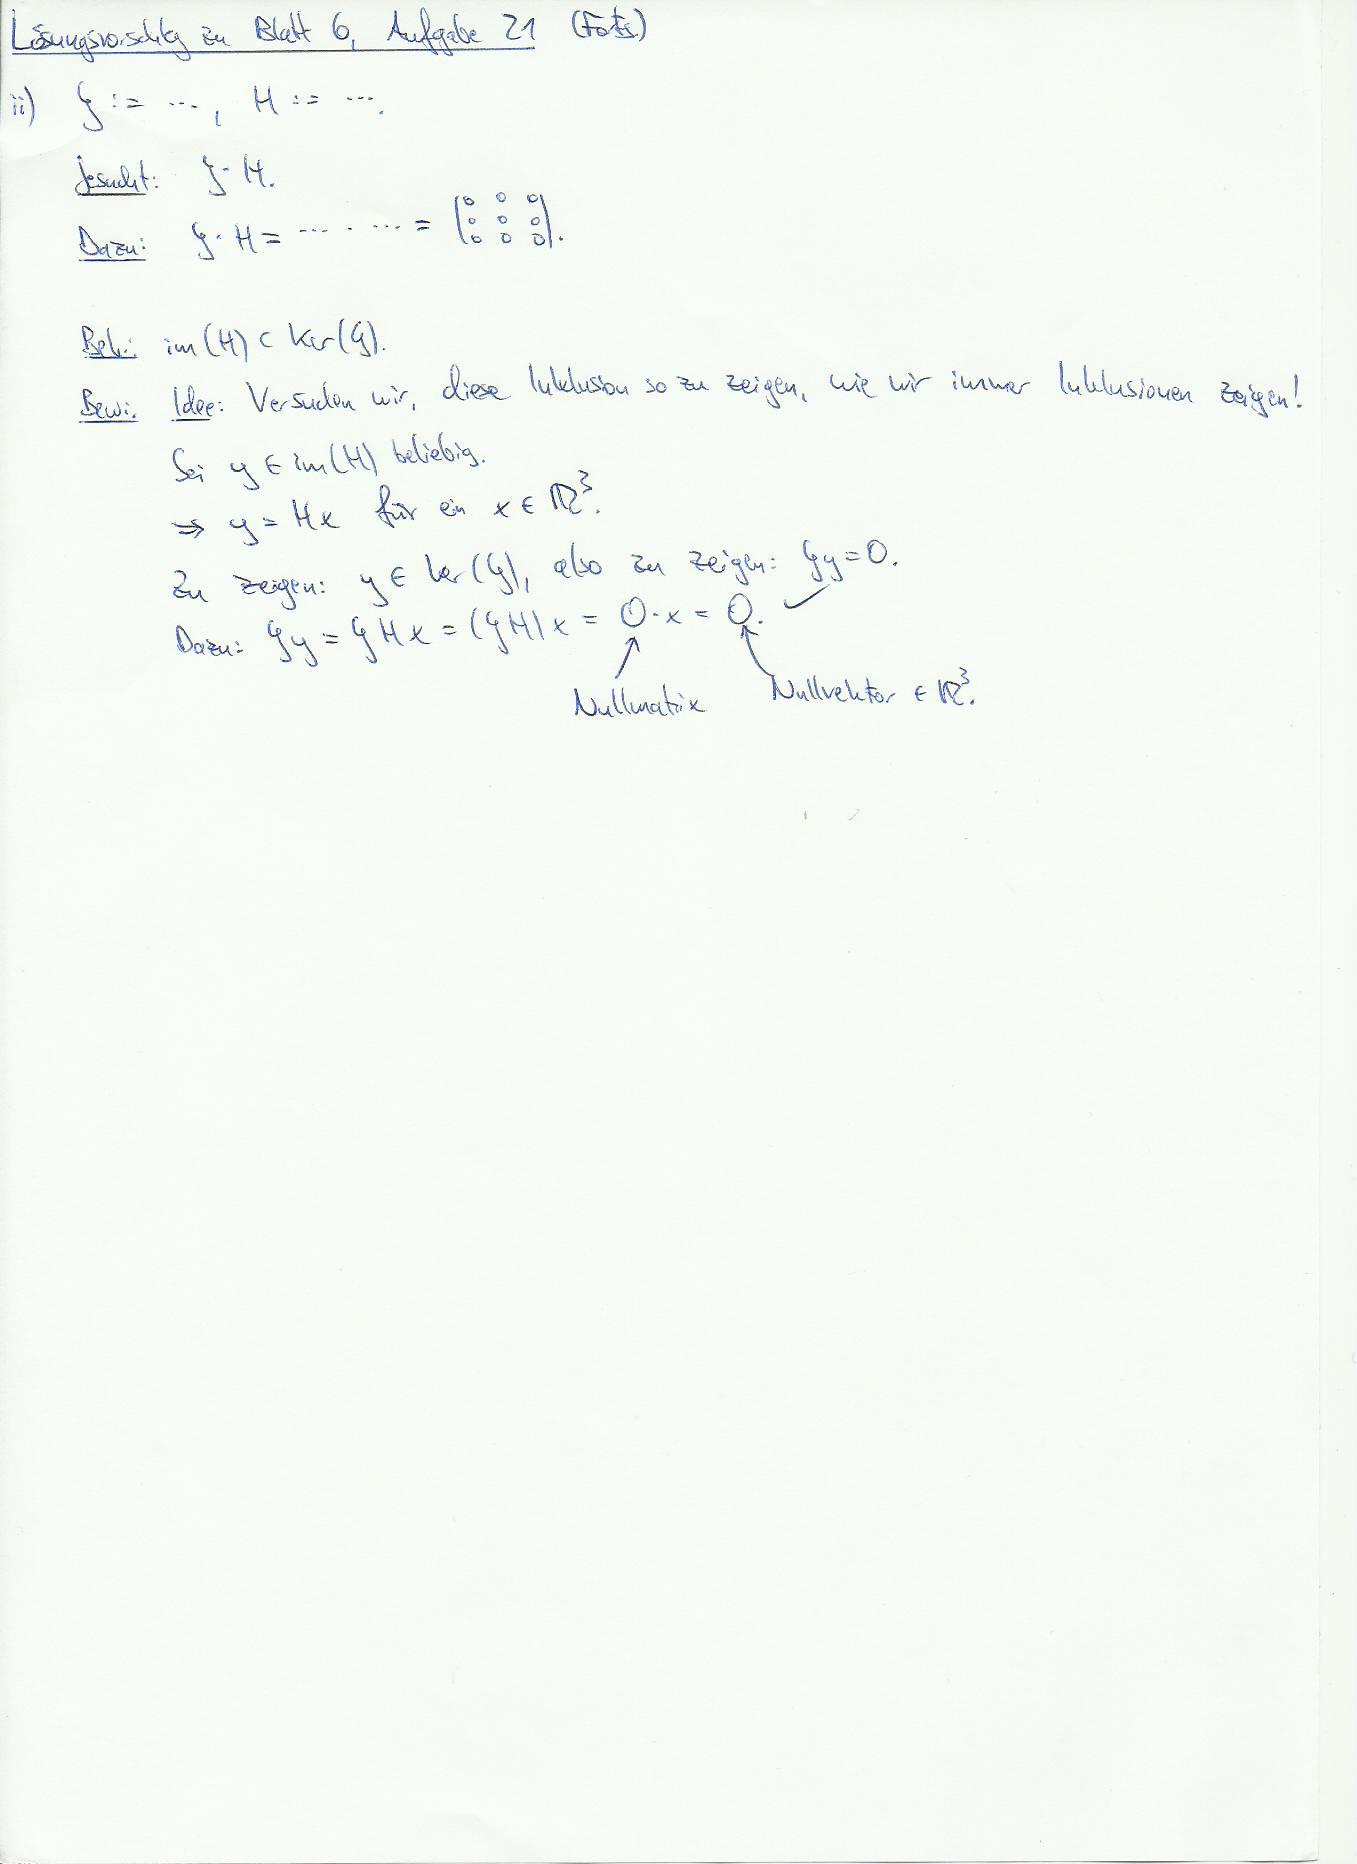 Lösungsvorschlag zu Blatt 6, Aufgabe 21 (Forts.)
ii) G := ..., H := ....
Gesucht: G·H.
Dazu: G·H = ... · ... = (0 0 0
0 0 0
0 0 0).
Beh.: im(H) ⊂ ker(G).
Bew.: Idee: Versuchen wir, diese Inklusion so zu zeigen, wie wir immer Inklusionen zeigen!
Sei y ∈ im(H) beliebig.
⇒ y = Hx für ein x ∈ ℝ³.
Zu zeigen: y ∈ ker(G), also zu zeigen: Gy = 0.
Dazu: Gy = GHx = (GH)x = 0·x = 0. ✓
Nullmatrix Nullvektor ∈ ℝ³.